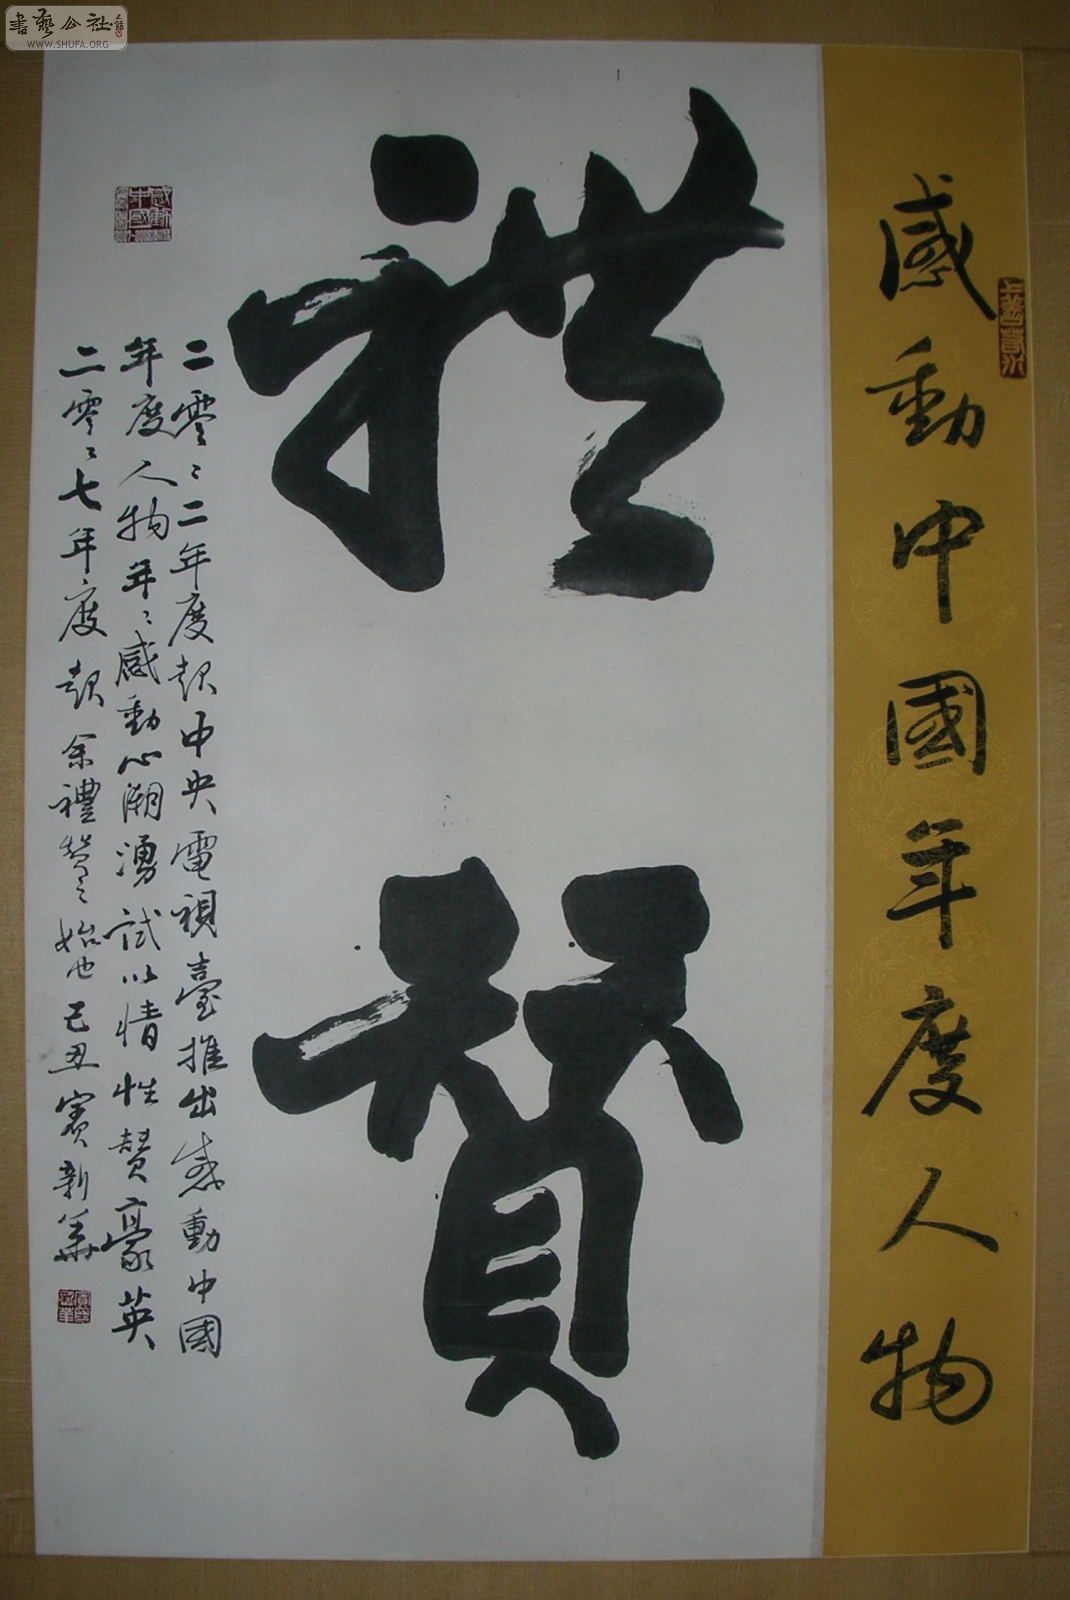 書藝公社
WWW.SHUFA.ORG
感動中國年度人物
上善若水
禮贊
二零零二年度起中央電視臺推出感動中國
年度人物年年感動心潮湧試以情性贊豪英
二零零七年度起余禮贊之始也己丑賓新華